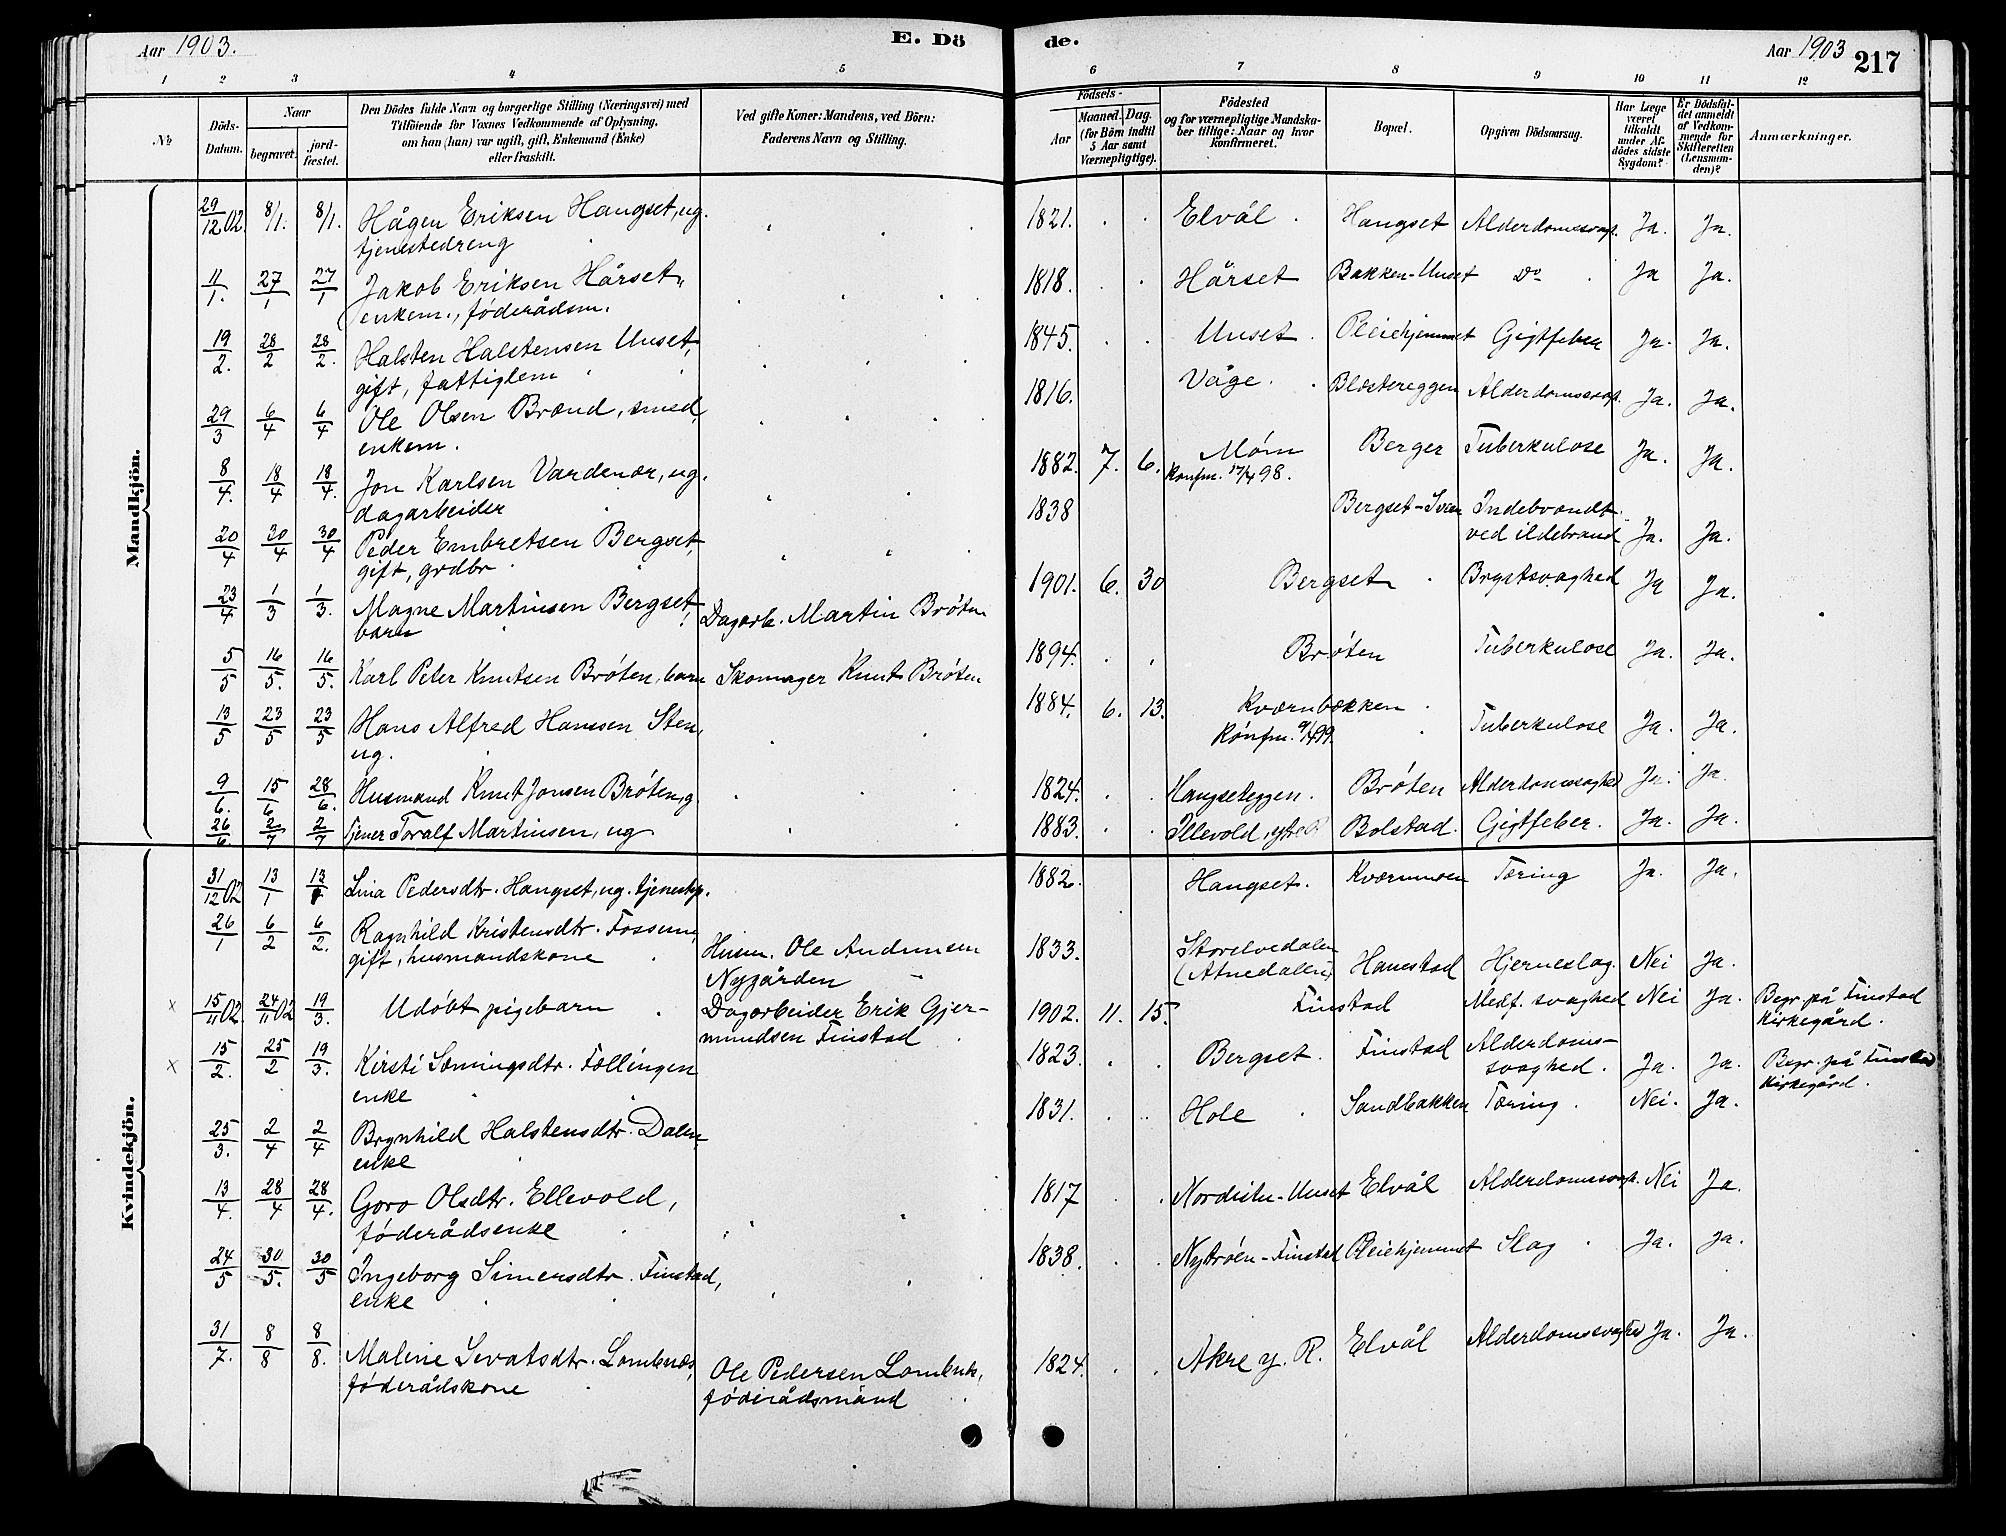 Aar 1903. E. Dö de. Aar 1903 217
1 2 3 4 5 6 7 8 9 10 11 12
No
Döds-Datum.
Naar
begravet.
jord-fæstet.
Den Dödes fulde Navn og borgerlige Stilling (Næringsvei) med
Tilföiende for Voxnes Vedkommende af Oplysning,
om han (hun) var ugift, gift, Enkemand (Enke)
eller fraskilt.
Ved gifte Koner: Mandens, ved Börn:
Faderens Navn og Stilling.
Födsels-
Aar
Maaned. Dag.
(for Börn indtil
5 Aar samt
Værnepligtige).
Födested
og for værnepligtige Mandska-
ber tillige: Naar og hvor
konfirmeret.
Bopæl.
Opgiven Dödsaarsag.
Har Læge
været
tilkaldt
under Af-
dödes sidste
Sygdom?
Er Dödsfal-
det anmeldt
af Vedkom-
mende for
Skifteretten
(Lensman-
den)?
Anmærkninger.
Mandkjön.
29/12 02. 8/1. 8/1. Hågen Eriksen Hangset, ug. 1821. Elvål Hangset Alderdomssvagh. Ja. Ja.
tjenestedreng
11/1. 27/1 27/1 Jakob Eriksen Hårset, 1818. Hårset Bakken-Unset Do Ja Ja.
enkem., föderådsm.
19/2. 28/2 28/2. Halsten Halstensen Unset, 1845. Unset Pleiehjemmet Gigtfeber Ja. Ja.
gift, fattiglem
29/3 6/4 6/4 Ole Olsen Brænd, smed, 1816. Våge Blæstereggen Alderdomssvagh. Ja. Ja.
enkem.
8/4. 18/4 18/4. Jon Karlsen Vardenær, ug. 1882. 7. 6. Møm Berger Tuberkulose Ja. Ja.
dagarbeider Konfm. 17/4 98.
20/4 30/4 30/4 Peder Embretsen Bergset, 1838 Bergset-Iven Indebrændt Ja. Ja.
gift, grdbr. ved ildebrand
23/4 1/3 1/3. Magne Martinsen Bergset, Dagarb. Martin Brøten 1901. 6. 30 Bergset Brystsvaghed Ja Ja.
barn
5/5 16/5. 16/5. Karl Peter Knutsen Brøten, barn Skomager Knut Brøten 1894. Brøten Tuberkulose Ja. Ja.
13/5 23/5 23/5 Hans Alfred Hansen Sten, 1884. 6. 13. Kværnbækken Tuberkulose Ja. Ja.
ug. Konfm. 9/4 99.
9/6. 15/6 28/6. Husmand Knut Jonsen Brøten, g. 1824. Hangseteggen. Brøten Alderdomssvaghed Ja. Ja.
26/6 2/7 2/7 Tjener Toralf Martinsen, ug 1883. Illevold, ytre R Bolstad. Gigtfeber. Ja. Ja.
Kvindekjön.
31/12 02 13/1 13/1 Lina Pedersdtr. Hangset, ug. tjenestep. 1882. Hangset. Kværnmoen Tæring Ja. Ja.
26/1 6/2 6/2. Ragnhild Kristensdtr. Fossum, Husm. Ole Andersen 1833. Storelvedalen Hanestad Hjerneslag. Nei Ja.
gift, husmandskone Nygården (Atnedalen)
x 15/11 02. 24/11 02 19/3. Udøbt pigebarn Dagarbeider Erik Gjer- 1902. 11. 15. Finstad Medf. svaghed Nei Ja. Begr. på Finstad
mundsen Finstad kirkegård.
x 15/2. 25/2 19/3. Kirsti Sæmingsdtr. Follingen 1823. Bergset. Finstad Alderdoms- Ja. Ja. Begr. på Finstad
enke svaghed. kirkegård.
25/3. 2/4 2/4 Brynhild Halstensdtr. Dalen, 1831. Hole Sandbakken Tæring. Nei. Ja.
enke
13/4. 28/4 28/4. Goro Olsdtr. Ellevold, 1817 Nordistu-Unset Elvål Alderdomssvagh. Nei Ja.
föderådsenke
24/5 30/5. 30/5 Ingeborg Simensdtr. Finstad, 1838. Nytrøen-Finstad Pleiehjemmet Slag Ja. Ja.
enke
31/7. 8/8 8/8. Malene Sivatsdtr. Lombnæs, Ole Pedersen Lombnæs, 1824. Akre y. R. Elvål Alderdomssvaghed Ja. Ja.
föderådskone föderådsmand